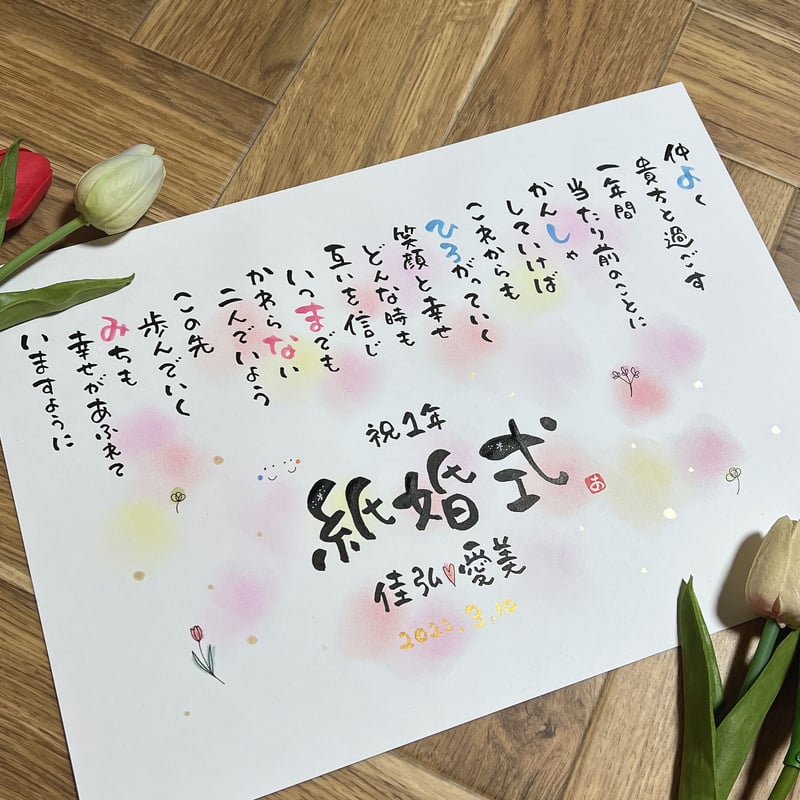 仲よく
貴方と過ごす
一年間
当たり前のことに
かんしゃ
していけば
これからも
ひろがっていく
笑顔と幸せ
どんな時も
互いを信じ
いつまでも
かわらない
二人でいよう
この先
歩んでいく
みちも
幸せがあふれて
いますように
祝1年
紙婚式
あ
佳弘♡愛美
2022.3.10